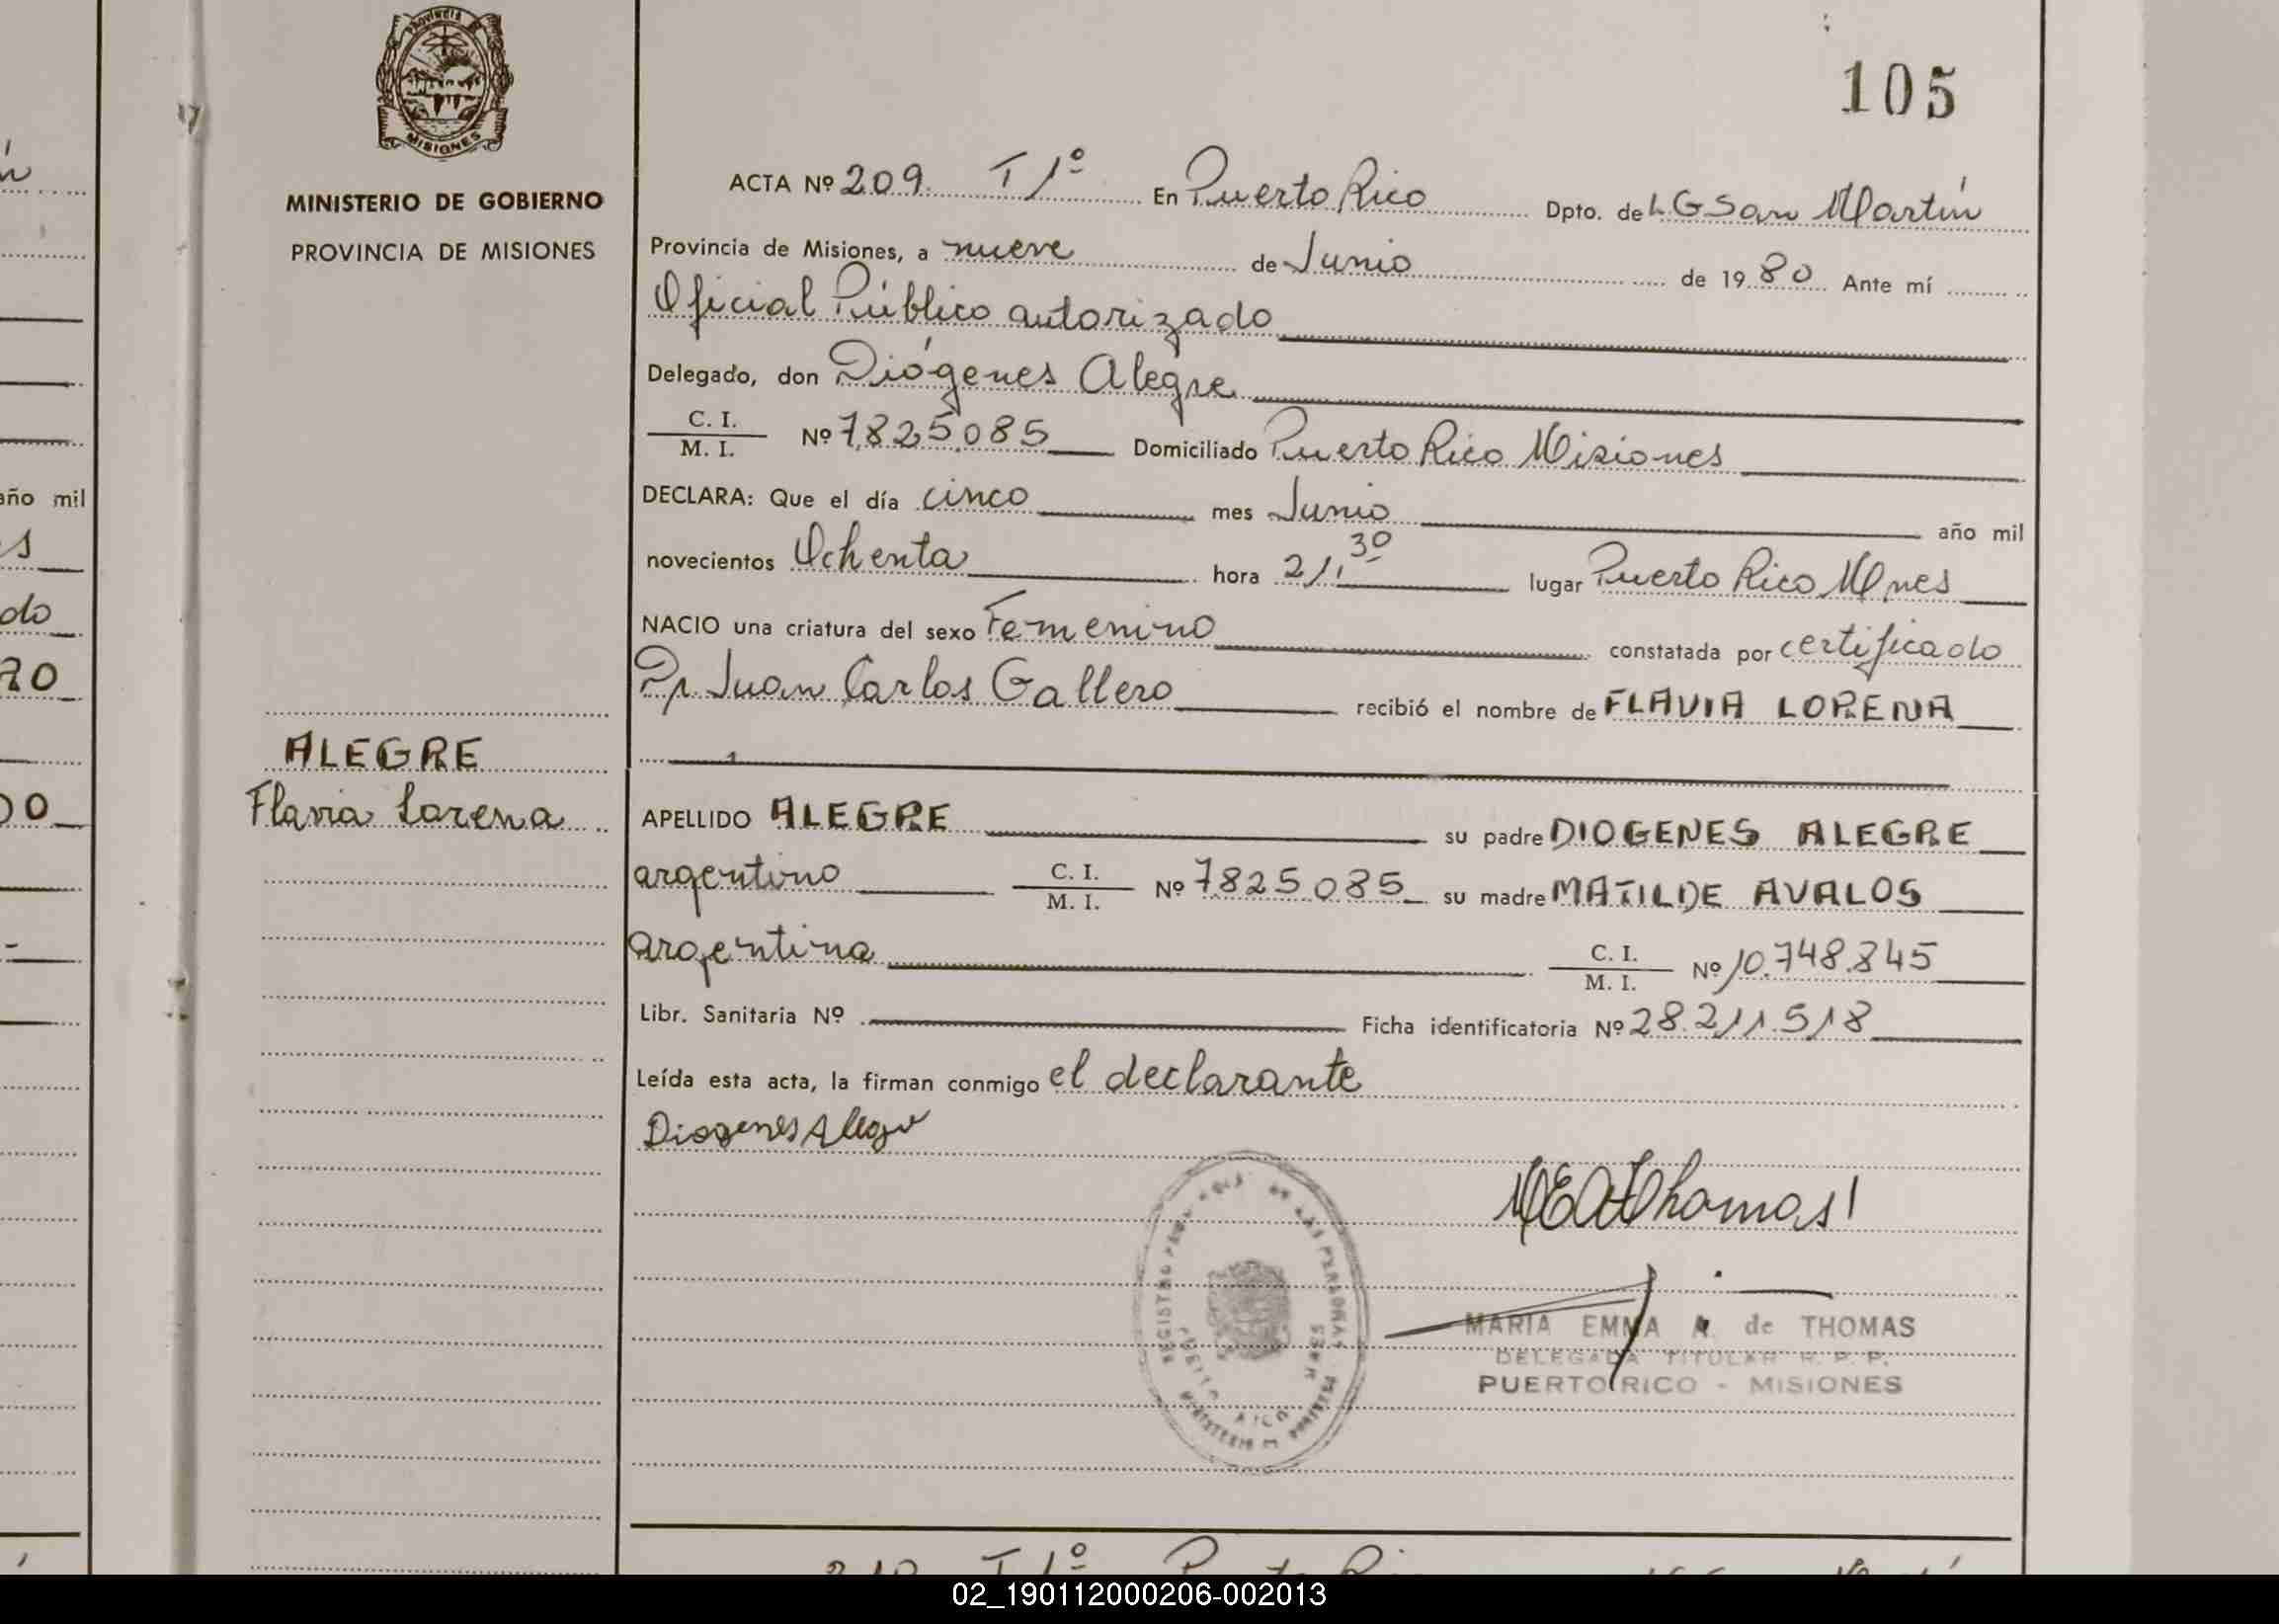 PROVINCIA
MISIONES
MINISTERIO DE GOBIERNO
PROVINCIA DE MISIONES
ALEGRE
Flavia Lorena
105
ACTA Nº 209 T 1º En Puerto Rico Dpto. de L G San Martín
Provincia de Misiones, a nueve de Junio de 1980 Ante mí
Oficial Público autorizado
Delegado, don Diógenes Alegre
C. I. / M. I. Nº 7.825.085 Domiciliado Puerto Rico Misiones
DECLARA: Que el día cinco mes Junio año mil
novecientos Ochenta hora 21,30 lugar Puerto Rico Mnes
NACIO una criatura del sexo Femenino constatada por certificado
Dr. Juan Carlos Gallero recibió el nombre de FLAVIA LORENA
APELLIDO ALEGRE su padre DIOGENES ALEGRE
argentino C. I. / M. I. Nº 7.825.085 su madre MATILDE AVALOS
argentina C. I. / M. I. Nº 10.748.845
Libr. Sanitaria Nº Ficha identificatoria Nº 28.211.518
Leída esta acta, la firman conmigo el declarante
Diogenes Alegre
MEA Thomas
MARIA EMMA A. de THOMAS
DELEGADA TITULAR R. P. P.
PUERTO RICO - MISIONES
año mil
02_190112000206-002013